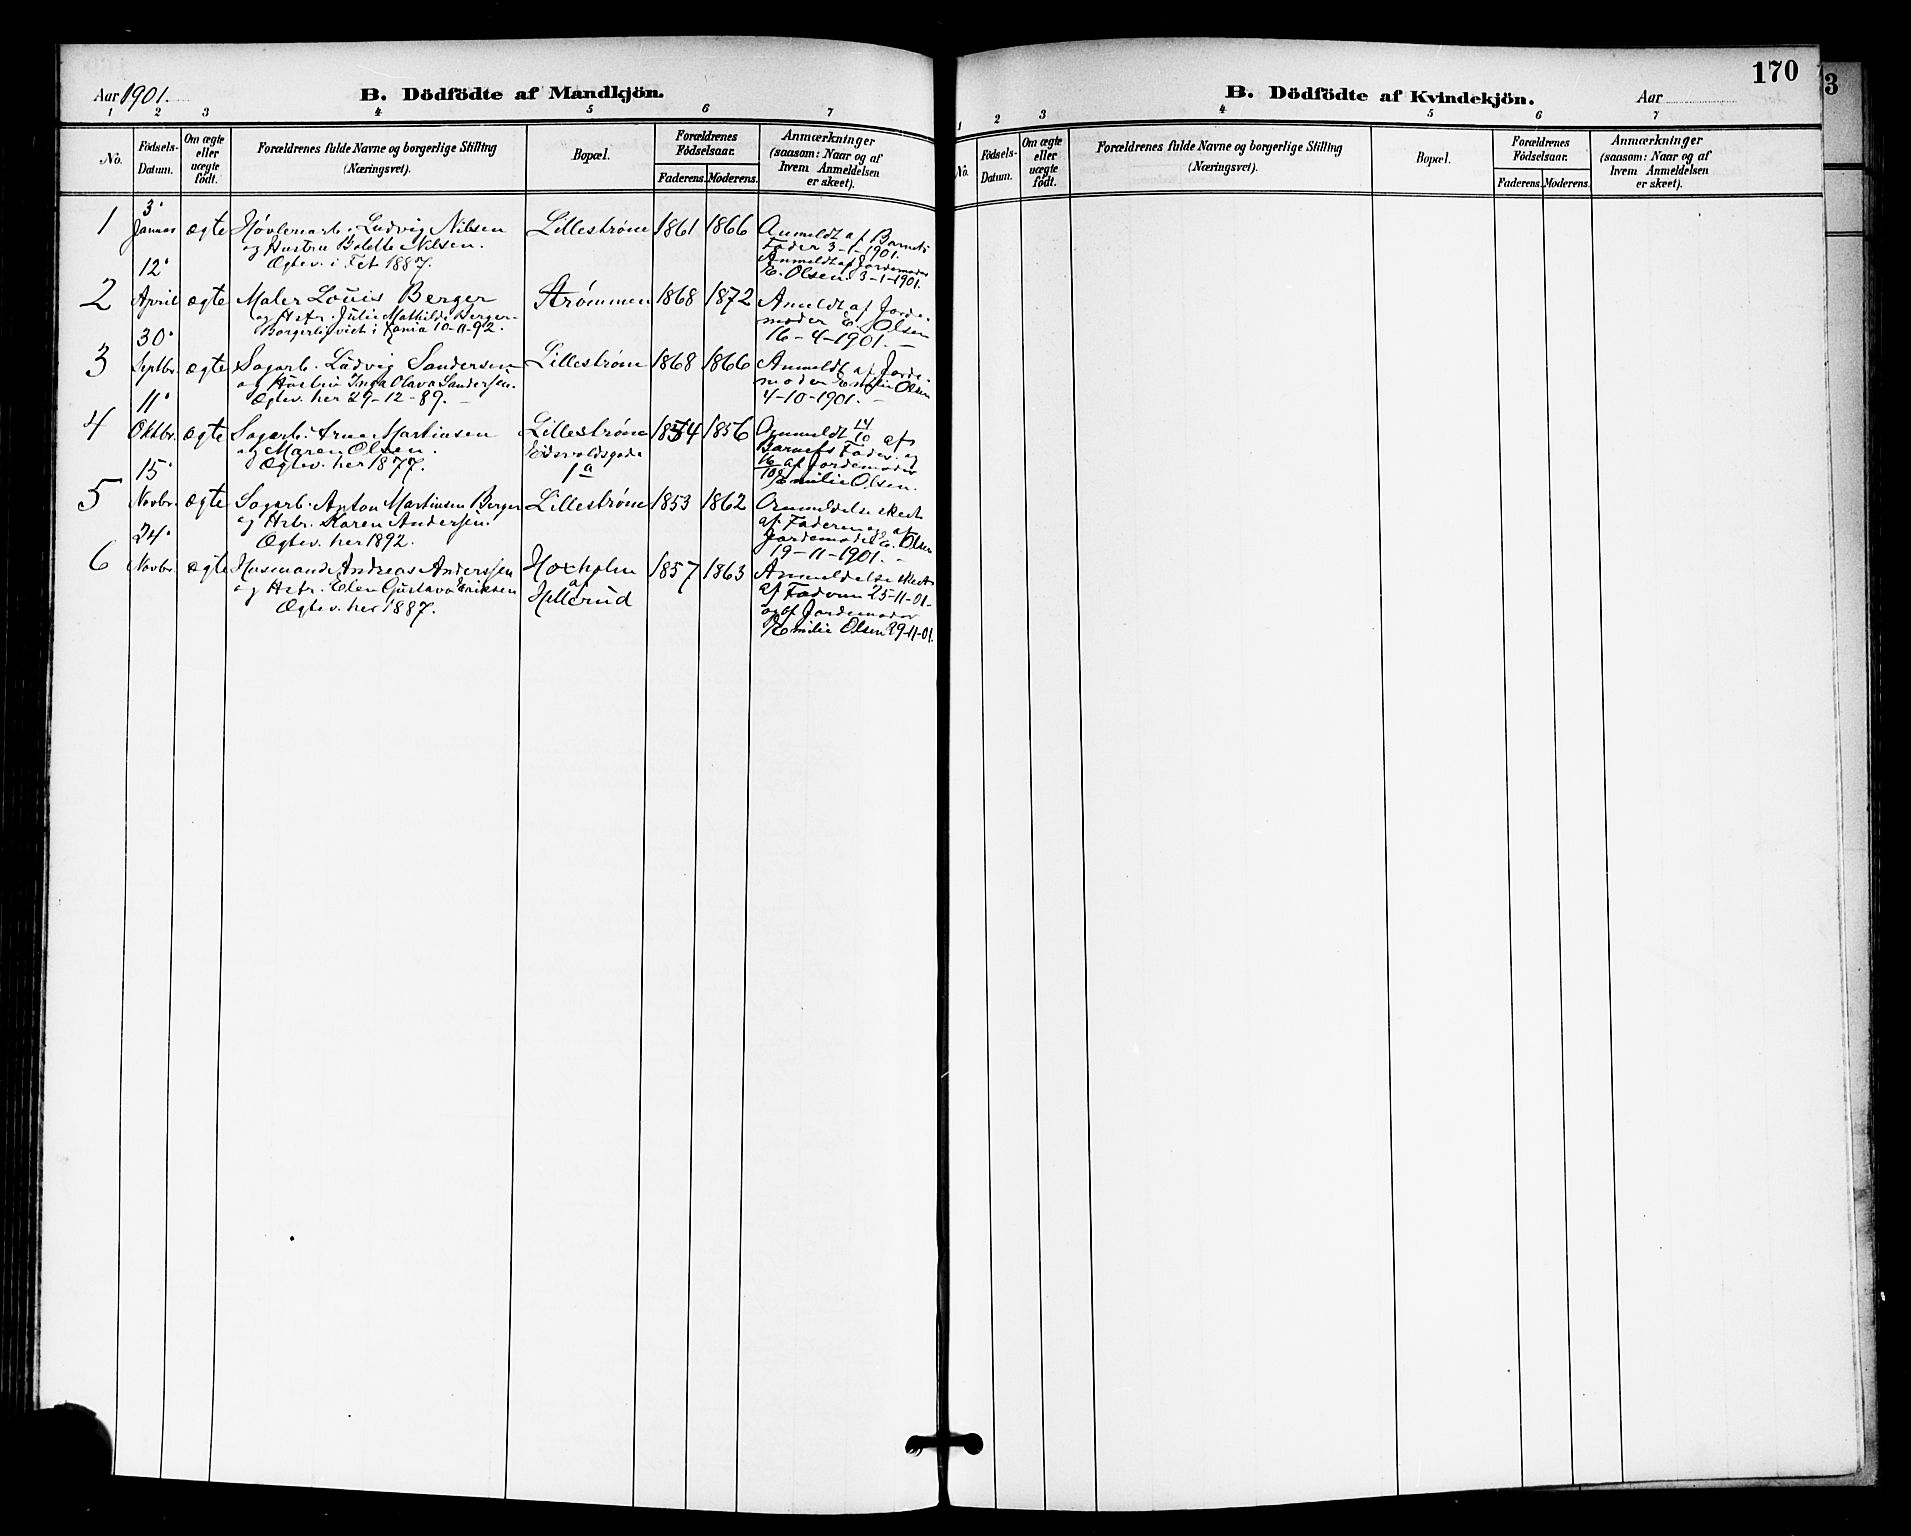 Aar 1901.
B. Dödfödte af Mandkjön.
1 2 3 4 5 6 7
No.
Födsels-
Datum.
Om ægte
eller
uægte
födt.
Forældrenes fulde Navne og borgerlige Stilling
(Næringsvei).
Bopæl.
Forældrenes
Födselsaar.
Faderens. Moderens.
Anmærkninger
(saasom: Naar og af
hvem Anmeldelsen
er skeet).
1
3.
Januar
ægte
Høvlerarb. Ludvig Nilsen
og Hustru Bolette Nilsen.
Ægtev. i Fet 1887.
Lillestrøm
1861 1866
Anmeldt af Barnets
Fader 3-1-1901.
Anmeldt af Jordemoder
E. Olsen 3-1-1901.
2
12.
April
ægte
Maler Louis Berger
og Hstr. Julie Mathilde Berger
Borgerlig viet i Kania 10-11-92.
Strømmen
1868 1872
Anmeldt af Jorde-
moder E. Olsen
16-4-1901.
3
30.
Septbr.
ægte
Sagarb. Ludvig Sandersen
og Hustru Inga Olava Sandersen.
Ægtev. her 29-12-89.
Lillestrøm
1868 1866
Anmeldt af Jorde-
moder Emilie Olsen
4-10-1901.
4
11.
Oktbr.
ægte
Sagarb. Arne Martinsen
og Maren Olsen.
Ægtev. her 1877.
Lillestrøm
Eidsvoldsgade
1a
1854 1856
Anmeldt 14/10 af
Barnets Fader og
16/10 af Jordemoder
Emilie Olsen.
5
15.
Novbr.
ægte
Sagarb. Anton Martinsen Berger
og Hstr. Karen Andersen.
Ægtev. her 1892.
Lillestrøm
1853 1862
Anmeldelse skeet
af Faderen og af
Jordemoder E. Olsen
19-11-1901.
6
24.
Novbr.
ægte
Husmand Andreas Anderssen
og Hstr. Elen Gustava Eriksen
Ægtev. her 1887.
Hoxholm
af
Hellerud
1857 1863
Anmeldelse skeet
af Faderen 25-11-01.
og af Jordemoder
Emilie Olsen 29-11-01.
170
B. Dödfödte af Kvindekjön.
Aar
1 2 3 4 5 6 7
No.
Födsels-
Datum.
Om ægte
eller
uægte
födt.
Forældrenes fulde Navne og borgerlige Stilling
(Næringsvei).
Bopæl.
Forældrenes
Födselsaar.
Faderens. Moderens.
Anmærkninger
(saasom: Naar og af
hvem Anmeldelsen
er skeet).
3